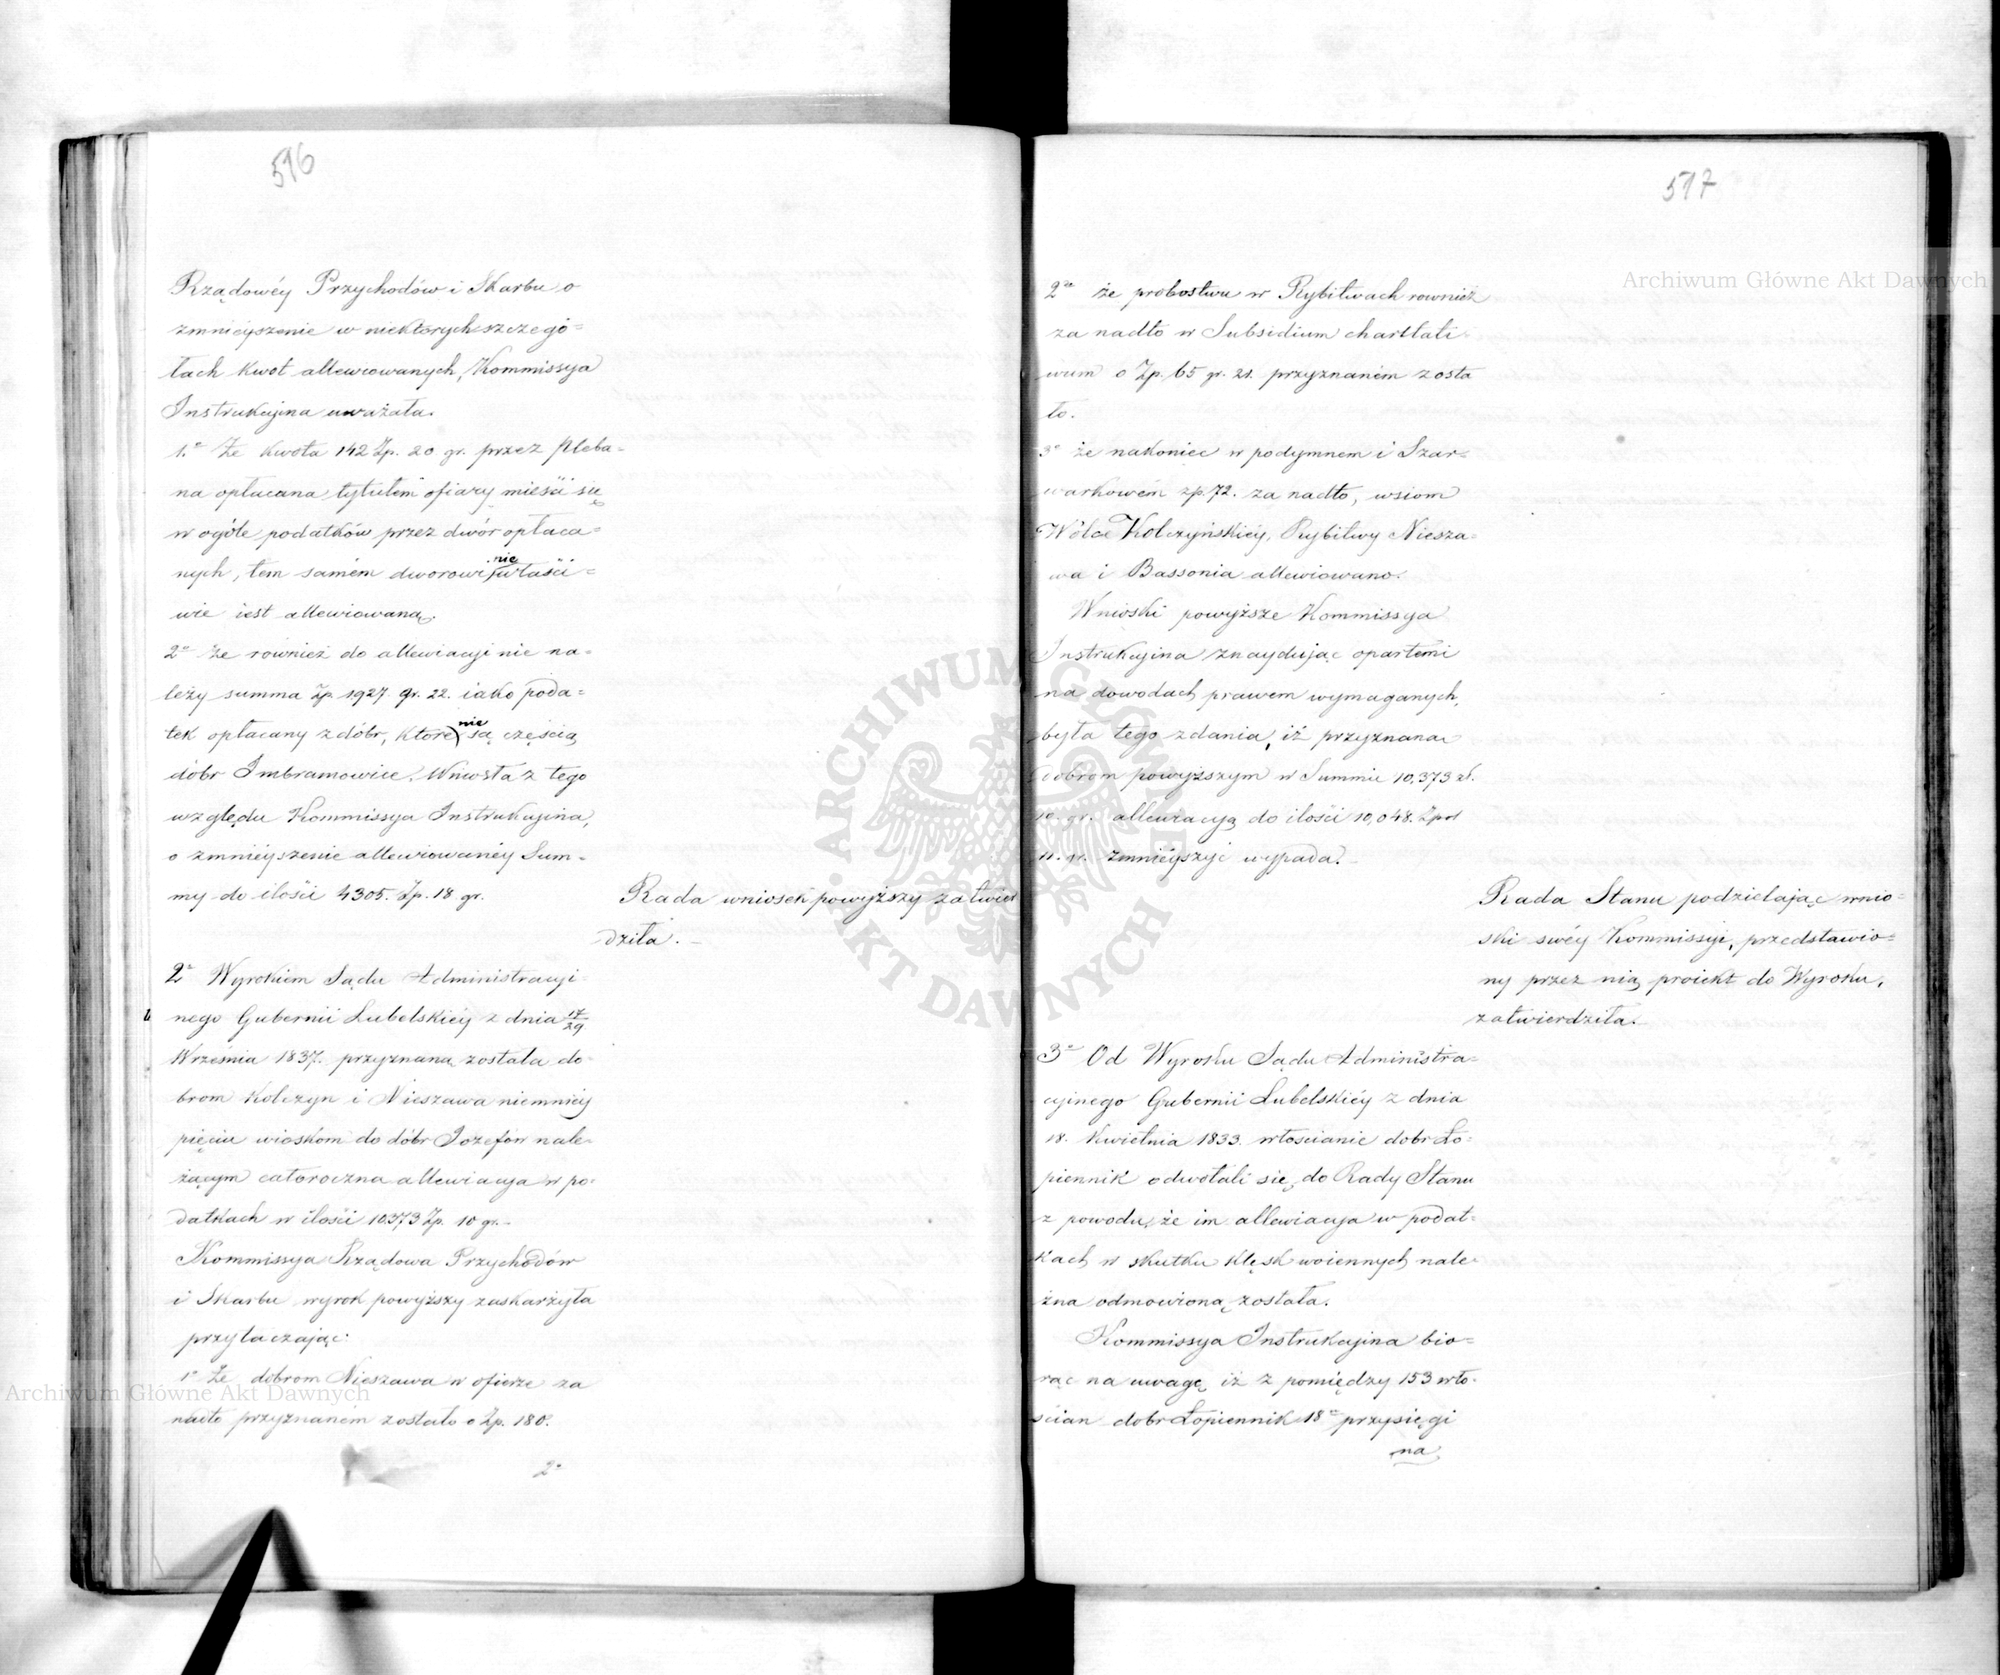 516
Rządowéy Przychodów i Skarbu o
zmnieyszenie w niektorych szczegó=
łach kwot allewiowanych, Kommissya
Instrukcyina uważała.
1.° Że kwota 142 Zp. 20 gr. przez Pleba=
na opłacana tytułem ofiary mieści się
w ogóle podatków przez dwór opłaca=
nych, tem samém dworowi nie właści=
wie iest allewiowaną.
2° że również do allewiacyi nie na=
leży summa Zp. 1927. gr. 22. iako poda=
tek opłacany z dóbr, które nie są częścią
dóbr Imbramowice. Wniosła z tego
względu Kommissya Instrukcyina,
o zmnieyszenie allewiowanéy Sum=
my do ilości 4305. Zp. 18 gr.
Rada wniosek powyższy zatwier
dziła. –
2° Wyrokiem Sądu Administracyi=
nego Gubernii Lubelskiéy z dnia 17/29
Września 1837. przyznaną została do=
brom Kolczyn i Nieszawa niemniéy
pięciu wioskom do dóbr Iozefów nale=
żącym całoroczna allewiacya w po=
datkach w ilości 10373 Zp. 10 gr. –
Kommissya Rządowa Przychodów
i Skarbu wyrok powyższy zaskarżyła
przytaczając:
1° Że dobrom Nieszawa w ofierze za
nadto przyznaném zostało o Zp. 180.
2°
517
2° że probostwu w Rybitwach rownież
za nadto w Subsidium charitati
wum o Zp. 65 gr. 21. przyznaném zosta
ło.
3° że nakoniec w podymnem i Szar=
warkowém zp. 72. za nadto, wsiom
Wólce Kolczyńskiéy, Rybitwy Niesza=
wa i Bassonia allewiowano.
Wnioski powyższe Kommissya
Instrukcyina znayduiąc opartemi
na dowodach prawem wymaganych,
była tego zdania, iż przyznaną
dobrom powyższym w Summie 10,373 zł.
10. gr. allewiacyą do ilości 10,048. Zpol
11. gr. zmnieyszyć wypada. –
Rada Stanu podzielając wnio=
ski swéy Kommissyi, przedstawio=
ny przez nią proiekt do Wyroku,
zatwierdziła. –
3° Od Wyroku Sądu Administra=
cyinego Gubernii Lubelskiéy z dnia
18. Kwietnia 1833. włościanie dobr Ło=
piennik odwołali się do Rady Stanu
z powodu, że im allewiacya w podat=
kach w skutku klęsk woiennych nale=
żna odmowioną została.
Kommissya Instrukcyina bio=
rąc na uwagę iż z pomiędzy 153 wło=
ścian dobr Łopiennik 18° przysięgi
na
Archiwum Główne Akt Dawnych
Archiwum Główne Akt Dawnych
ARCHIWUM GŁÓWNE
AKT DAWNYCH